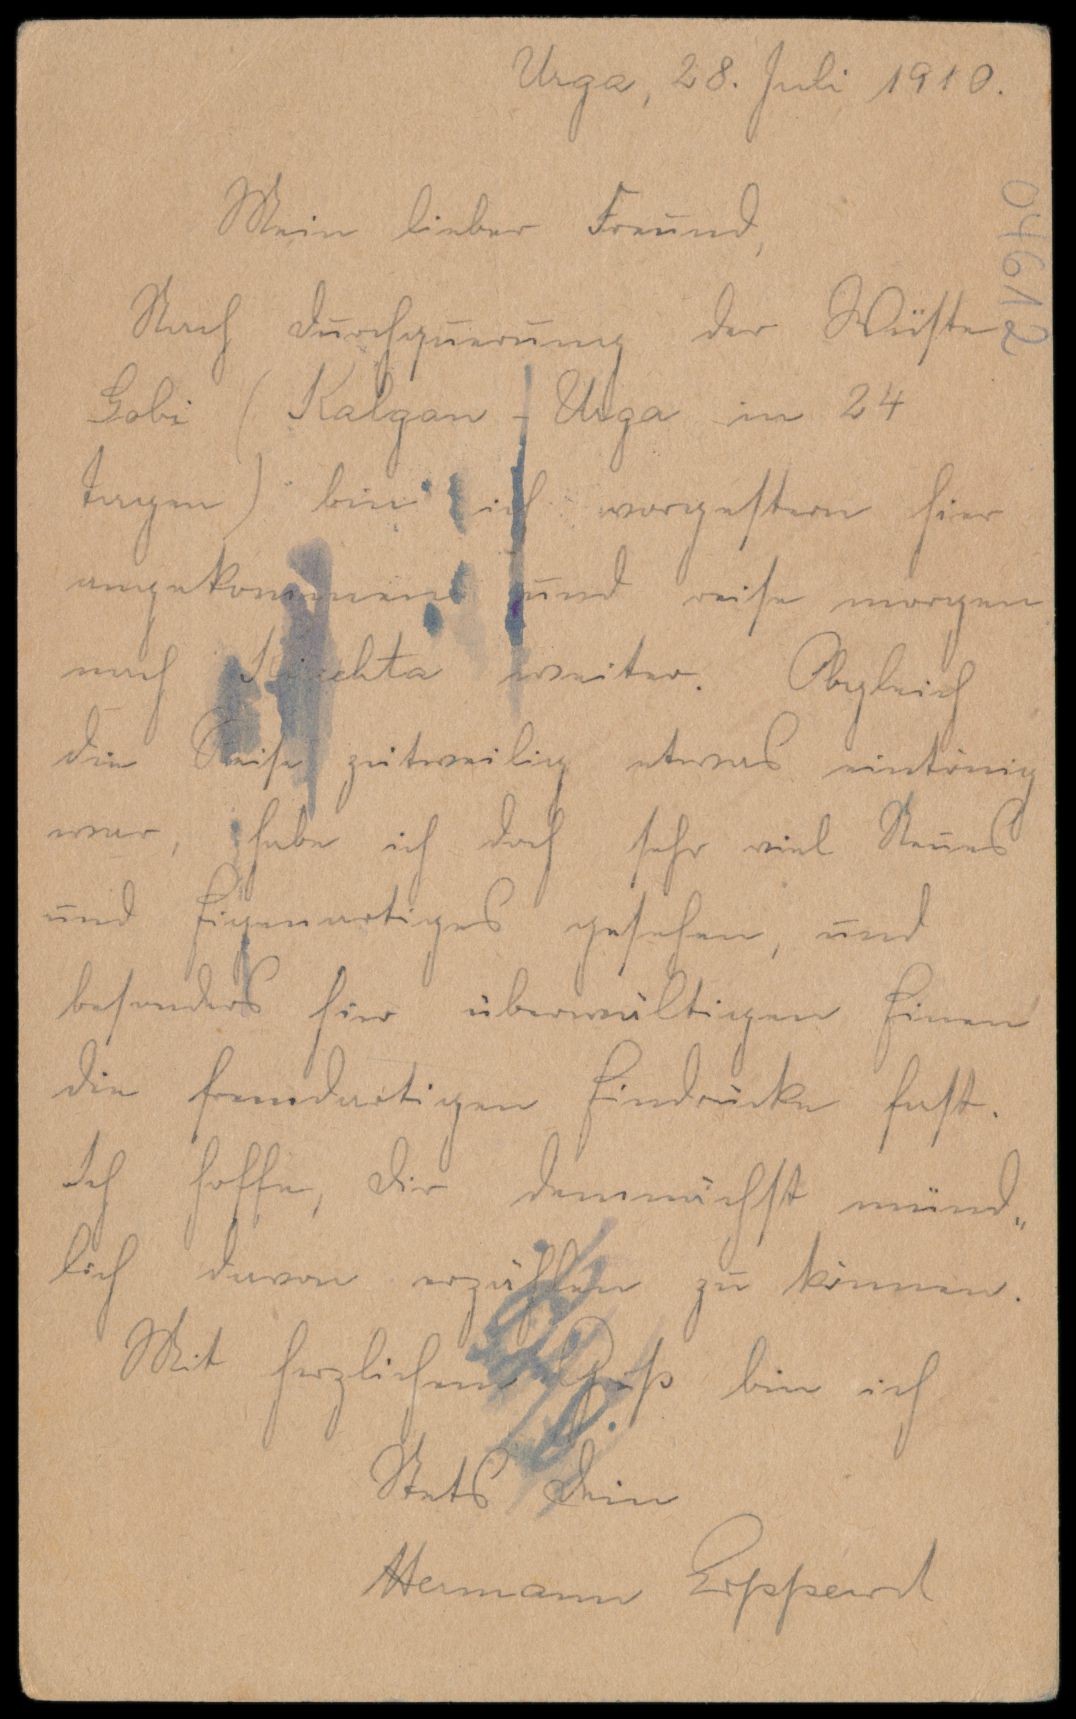 Urga, 28. Juli 1910.
04612
Mein lieber Freund,
Nach Durchquerung der Wüste
Gobi (Kalgan - Urga in 24
Tagen) bin ich vorgestern hier
angekommen und reise morgen
nach Kiachta weiter. Obgleich
die Reise zeitweilig etwas eintönig
war, habe ich doch sehr viel Neues
und Eigenartiges gesehen, und
besonders hier überwältigen Einen
die fremdartigen Eindrücke fast.
Ich hoffe, Dir demnächst münd„
lich davon erzählen zu können.
Mit herzlichem Gruß bin ich
Stets Dein
Hermann